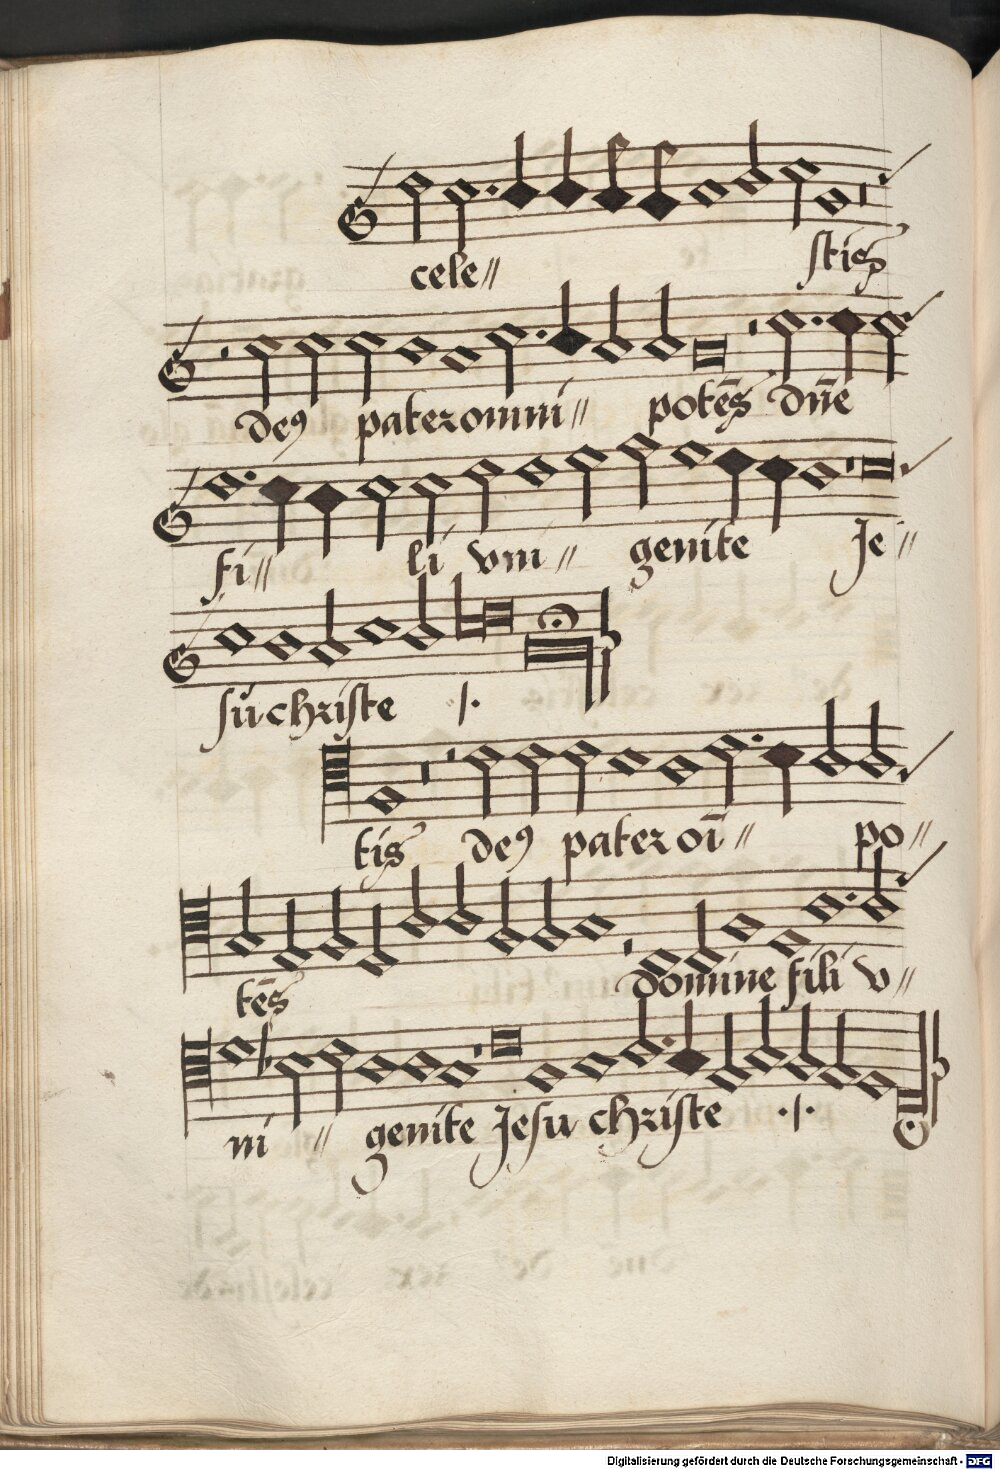 cele〃 stis
deꝰ pater omni〃 potēs dn̄e
fi〃 li vni〃 genite Je〃
su christe ·/·
tis deꝰ pater oī〃 po〃
tēs domine fili v〃
ni 〃 genite Jesu christe ·/·
Digitalisierung gefördert durch die Deutsche Forschungsgemeinschaft - DFG